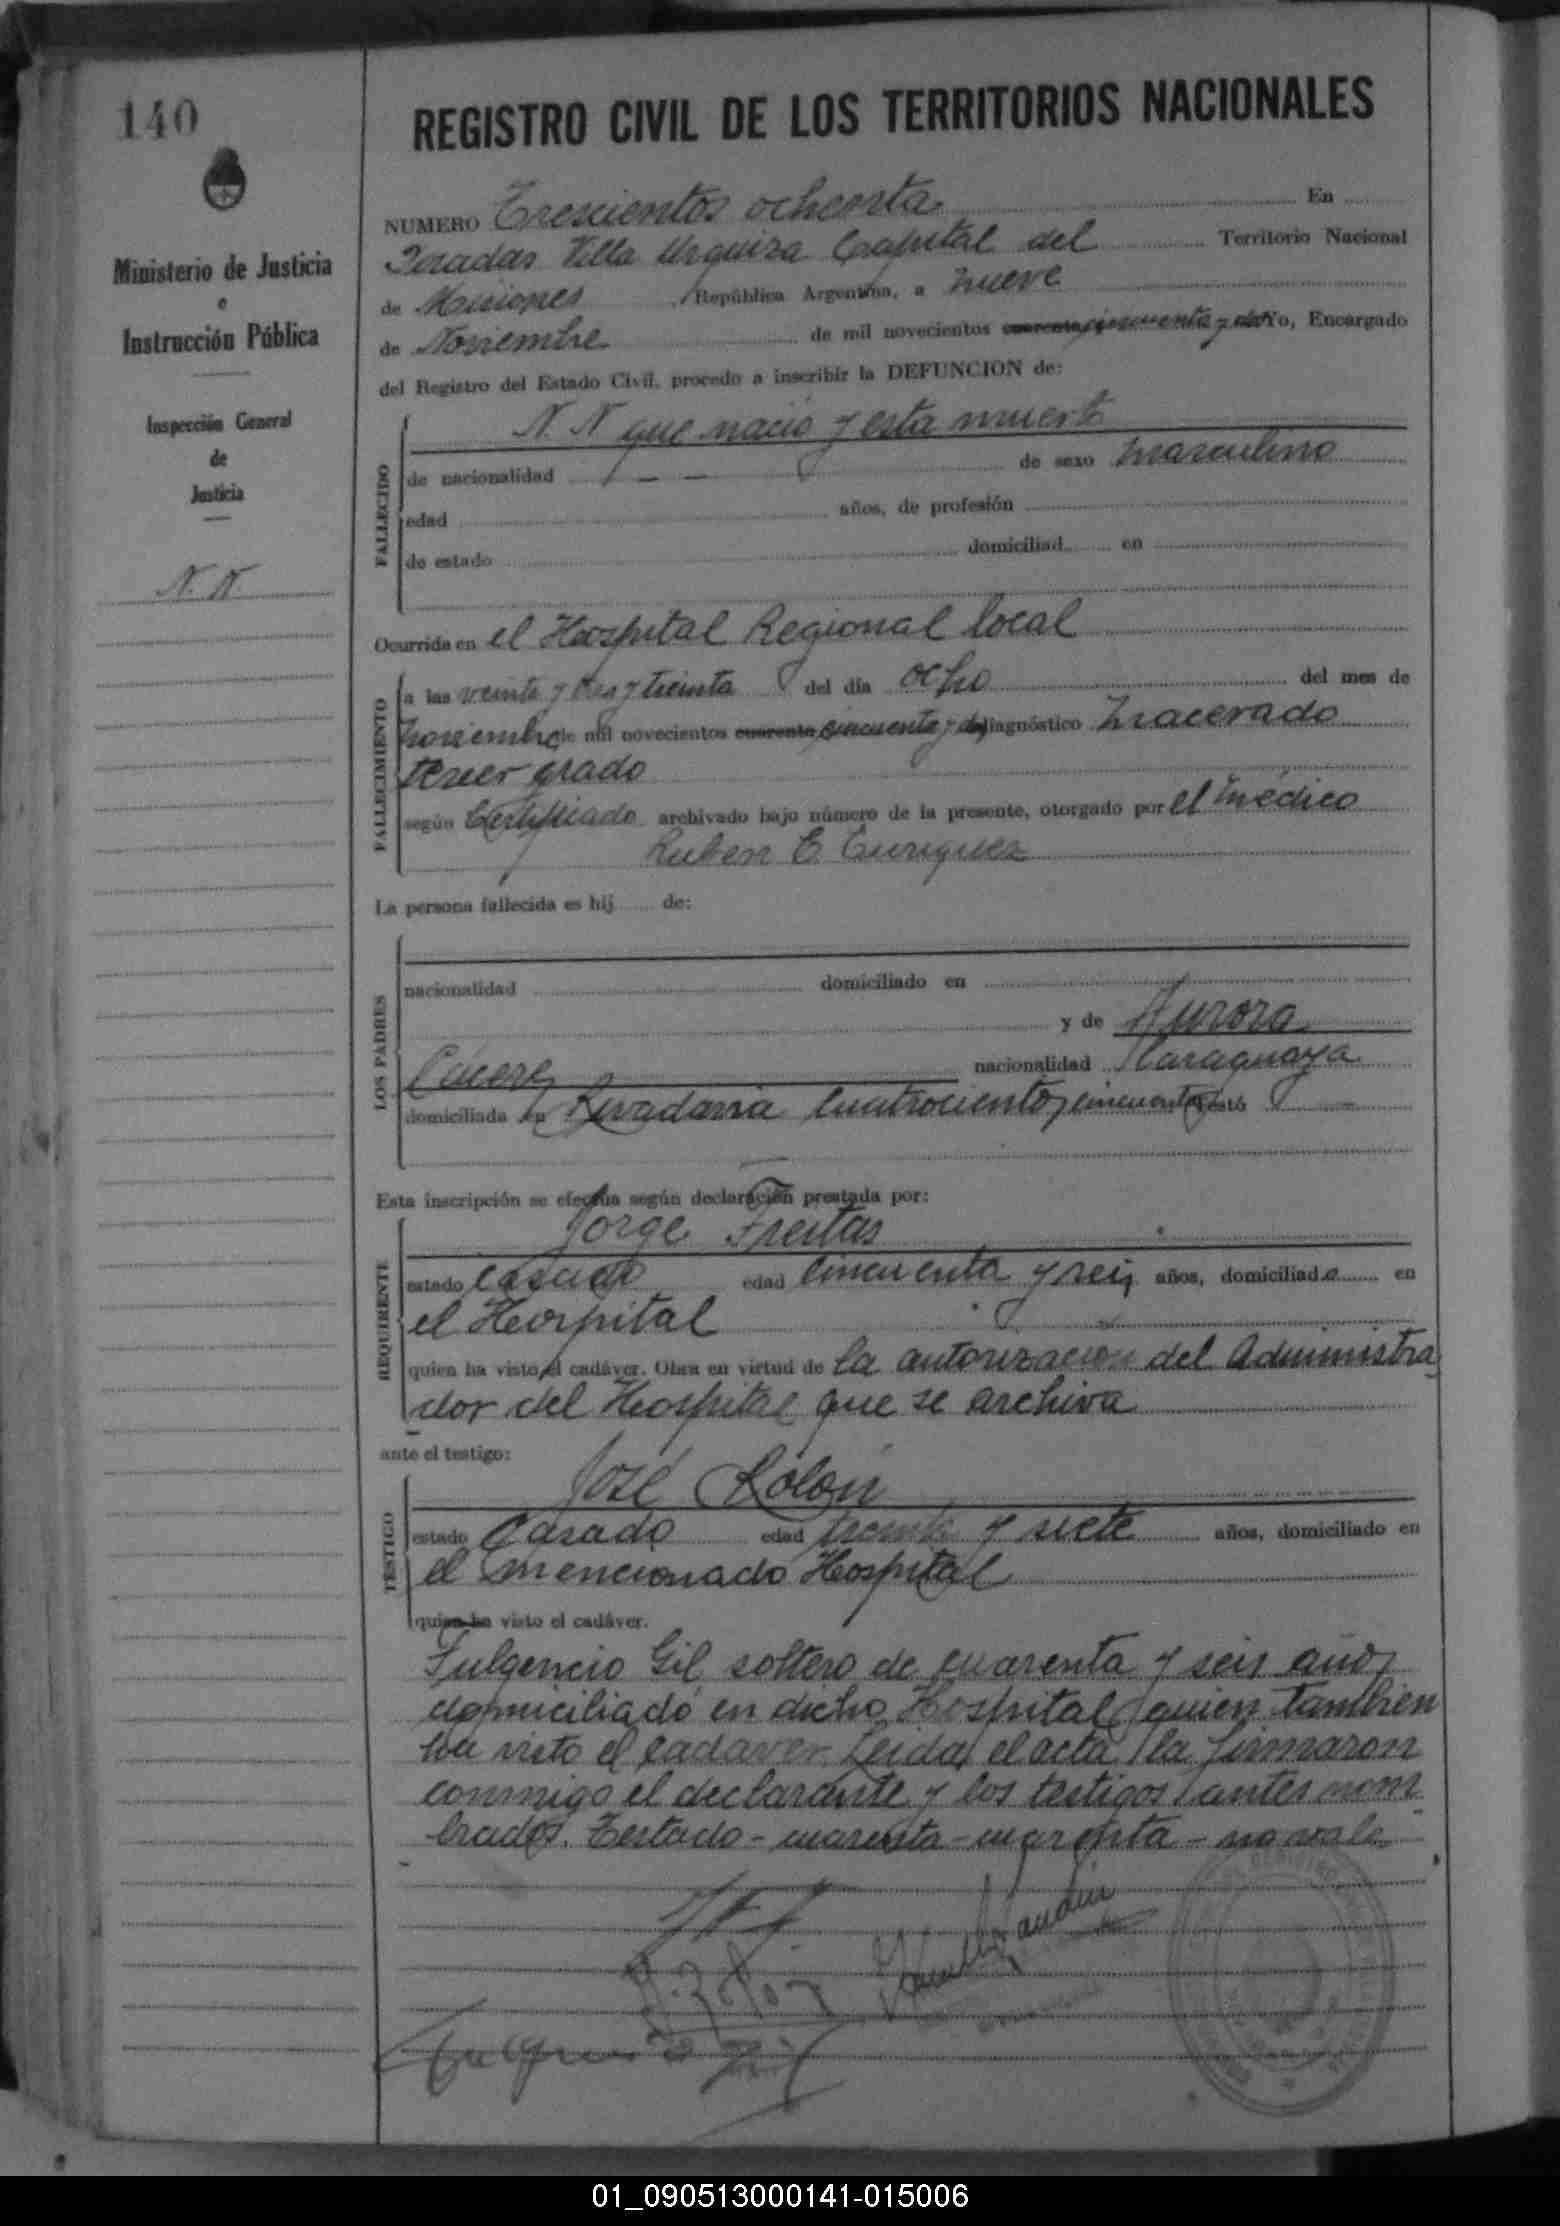 140
REGISTRO CIVIL DE LOS TERRITORIOS NACIONALES
Ministerio de Justicia
e
Instrucción Pública
Inspección General
de
Justicia
N. N.
NUMERO Trescientos ochenta En
Posadas Villa Urquiza Capital del Territorio Nacional
de Misiones República Argentina, a nueve
de Noviembre de mil novecientos cuarenta cincuenta y dos Yo, Encargado
del Registro del Estado Civil, procedo a inscribir la DEFUNCION de:
FALLECIDO
N. N que nació y esta muerto
de nacionalidad — — de sexo masculino
edad años, de profesión
de estado domiciliad en
Ocurrida en el Hospital Regional local
FALLECIMIENTO
a las veinte y tres y treinta del día ocho del mes de
noviembre de mil novecientos cuarenta cincuenta y dos diagnóstico macerado
tercer grado
según Certificado archivado bajo número de la presente, otorgado por el médico
Ruben E
La persona fallecida es hij de:
LOS PADRES
nacionalidad domiciliado en
y de Aurora
Cácere nacionalidad Paraguaya
domiciliada en Rivadavia cuatrocientos cincuenta
Esta inscripción se efectúa según declaración prestada por:
REQUIRENTE
Jorge Freitas
estado casado edad cincuenta y seis años, domiciliado en
el Hospital
quien ha visto el cadáver. Obra en virtud de la autorizacion del Administra
dor del Hospital que se archiva
ante el testigo:
TESTIGO
José Rolón
estado Casado edad treinta y siete años, domiciliado en
el mencionado Hospital
quien ha visto el cadáver.
Fulgencio Gil soltero de cuarenta y seis años
domiciliado en dicho Hospital quien tambien
ha visto el cadaver. Leida el acta la firmaron
conmigo el declarante y los testigos antes nom
brados. Testado - cuarenta - cuarenta - no vale
01_090513000141-015006